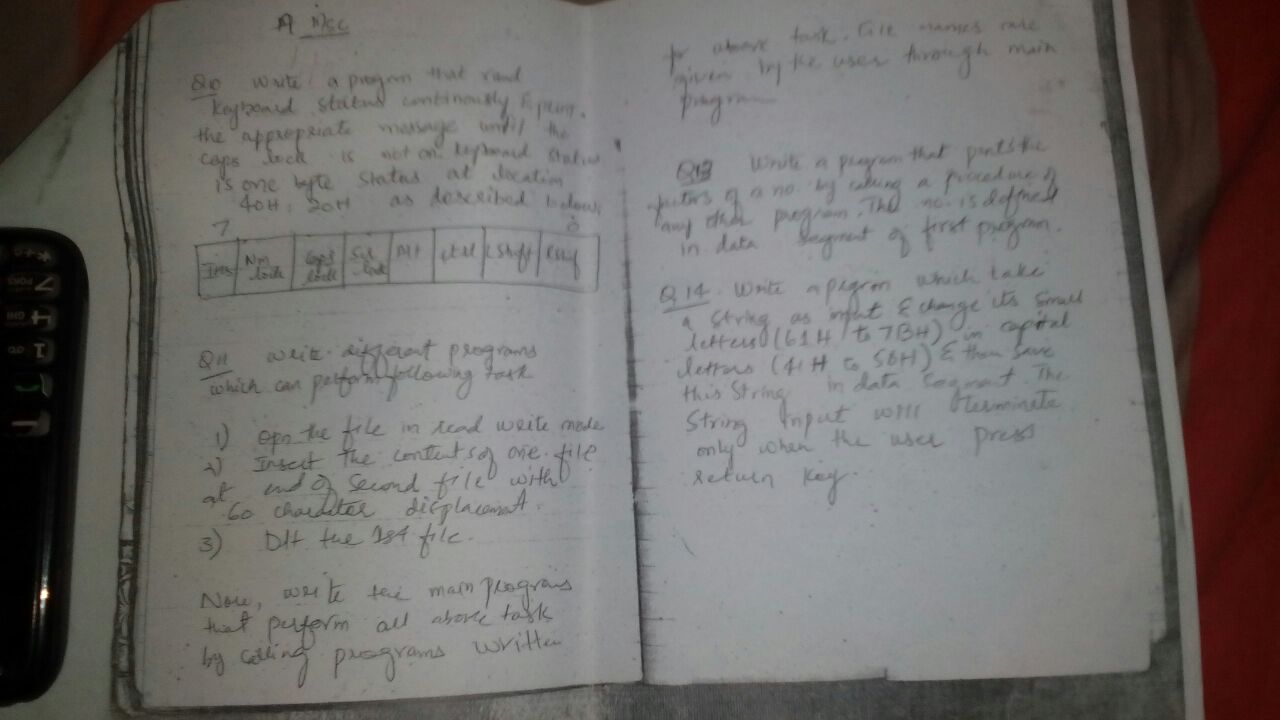 A Msc
Q10 Write a program that read
keyboard status continously & print
the appropriate message until the
caps lock is not on. keyboard status
is one byte status at location
40H: 20H as described below
7 0
Ins Nm lock Caps lock Scl lock Alt ctrl L Shift
Q11 write different programs
which can perform following task
1) opn the file in read write mode
2) Insert the contents of one file
at end of second file with
60 character displacement.
3) the 1st file.
Now, write the main program
that perform all above task
by calling programs written
for above task. file names are
given by the user through main
program
Q13 Write a program that prints the
of a no. by calling a procedure of
any other program. The no. is defined
in data segment of first program.
Q14. Write a program which take
a string as input & change its small
letters (61H to 7BH) in capital
letters (41H to 5BH) & then save
this string in data segment. The
string input will terminate
only when the user press
return key.